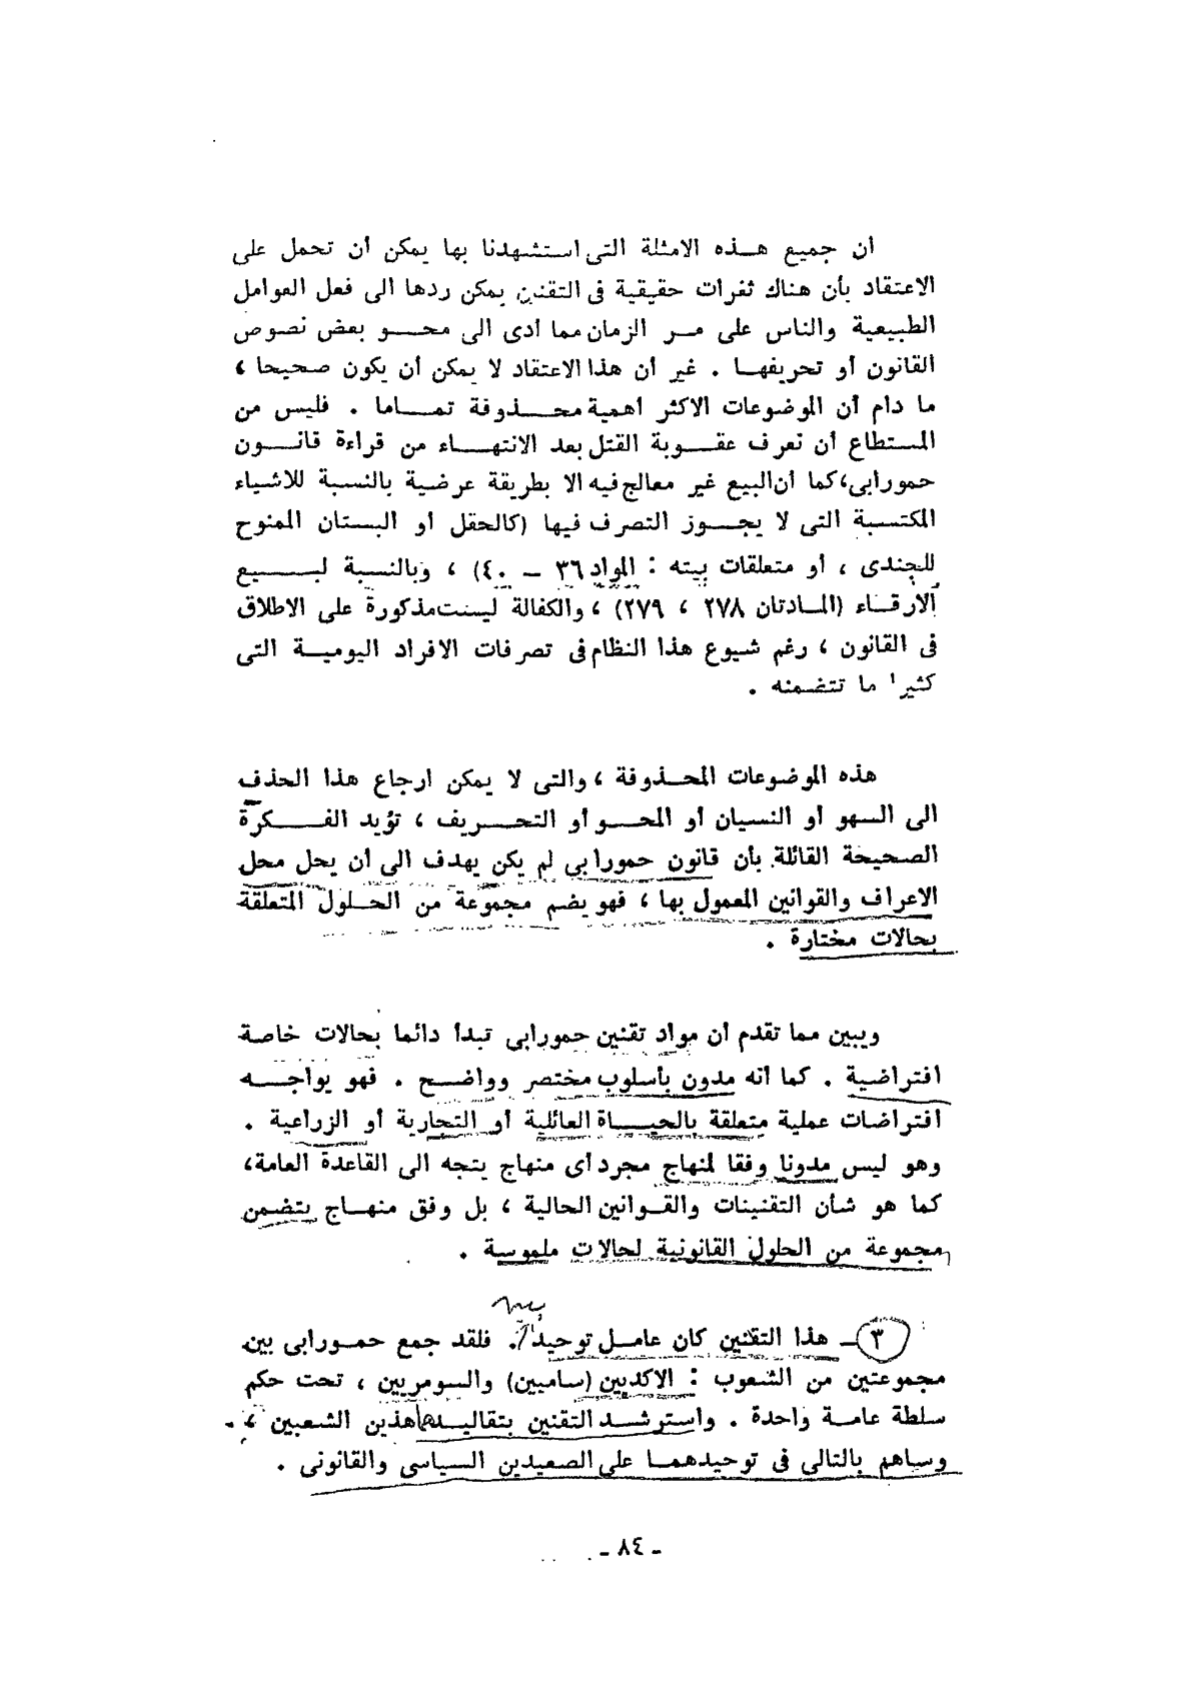 أن جميع هذه الامثلة التى استشهدنا بها يمكن أن تحمل على
الاعتقاد بأن هناك ثغرات حقيقية فى التقنين يمكن ردها الى فعل العوامل
الطبيعية والناس على مر الزمان مما أدى الى محو بعض نصوص
القانون أو تحريفها . غير أن هذا الاعتقاد لا يمكن أن يكون صحيحا ،
ما دام أن الموضوعات الاكثر اهمية محذوفة تماما . فليس من
المستطاع أن نعرف عقوبة القتل بعد الانتهاء من قراءة قانون
حمورابى، كما أن البيع غير معالج فيه الا بطريقة عرضية بالنسبة للاشياء
المكتسبة التى لا يجوز التصرف فيها (كالحقل او البستان الممنوح
للجندى ، أو متعلقات بيته : المواد ٣٦ – ٤٠) ، وبالنسبة لبيع
الارقاء (المادتان ٢٧٨ ، ٢٧٩) ، والكفالة ليست مذكورة على الاطلاق
فى القانون ، رغم شيوع هذا النظام فى تصرفات الافراد اليومية التى
كثيرا ما تتضمنه .
هذه الموضوعات المحذوفة ، والتى لا يمكن ارجاع هذا الحذف
الى السهو أو النسيان أو المحو أو التحريف ، تؤيد الفكرة
الصحيحة القائلة بأن قانون حمورابى لم يكن يهدف الى أن يحل محل
الاعراف والقوانين المعمول بها ، فهو يضم مجموعة من الحلول المتعلقة
بحالات مختارة .
ويبين مما تقدم أن مواد تقنين حمورابى تبدأ دائما بحالات خاصة
افتراضية . كما أنه مدون بأسلوب مختصر وواضح . فهو يواجه
افتراضات عملية متعلقة بالحياة العائلية أو التجارية أو الزراعية .
وهو ليس مدونا وفقا لمنهاج مجرد أى منهاج يتجه الى القاعدة العامة،
كما هو شأن التقنينات والقوانين الحالية ، بل وفق منهاج يتضمن
مجموعة من الحلول القانونية لحالات ملموسة .
٣ – هذا التقنين كان عامل توحيد . فلقد جمع حمورابى بين
مجموعتين من الشعوب : الاكديين (ساميين) والسومريين ، تحت حكم
سلطة عامة واحدة . واسترشد التقنين بتقاليد هذين الشعبين ،
وساهم بالتالى فى توحيدهما على الصعيدين السياسى والقانونى .
- ٨٤ -